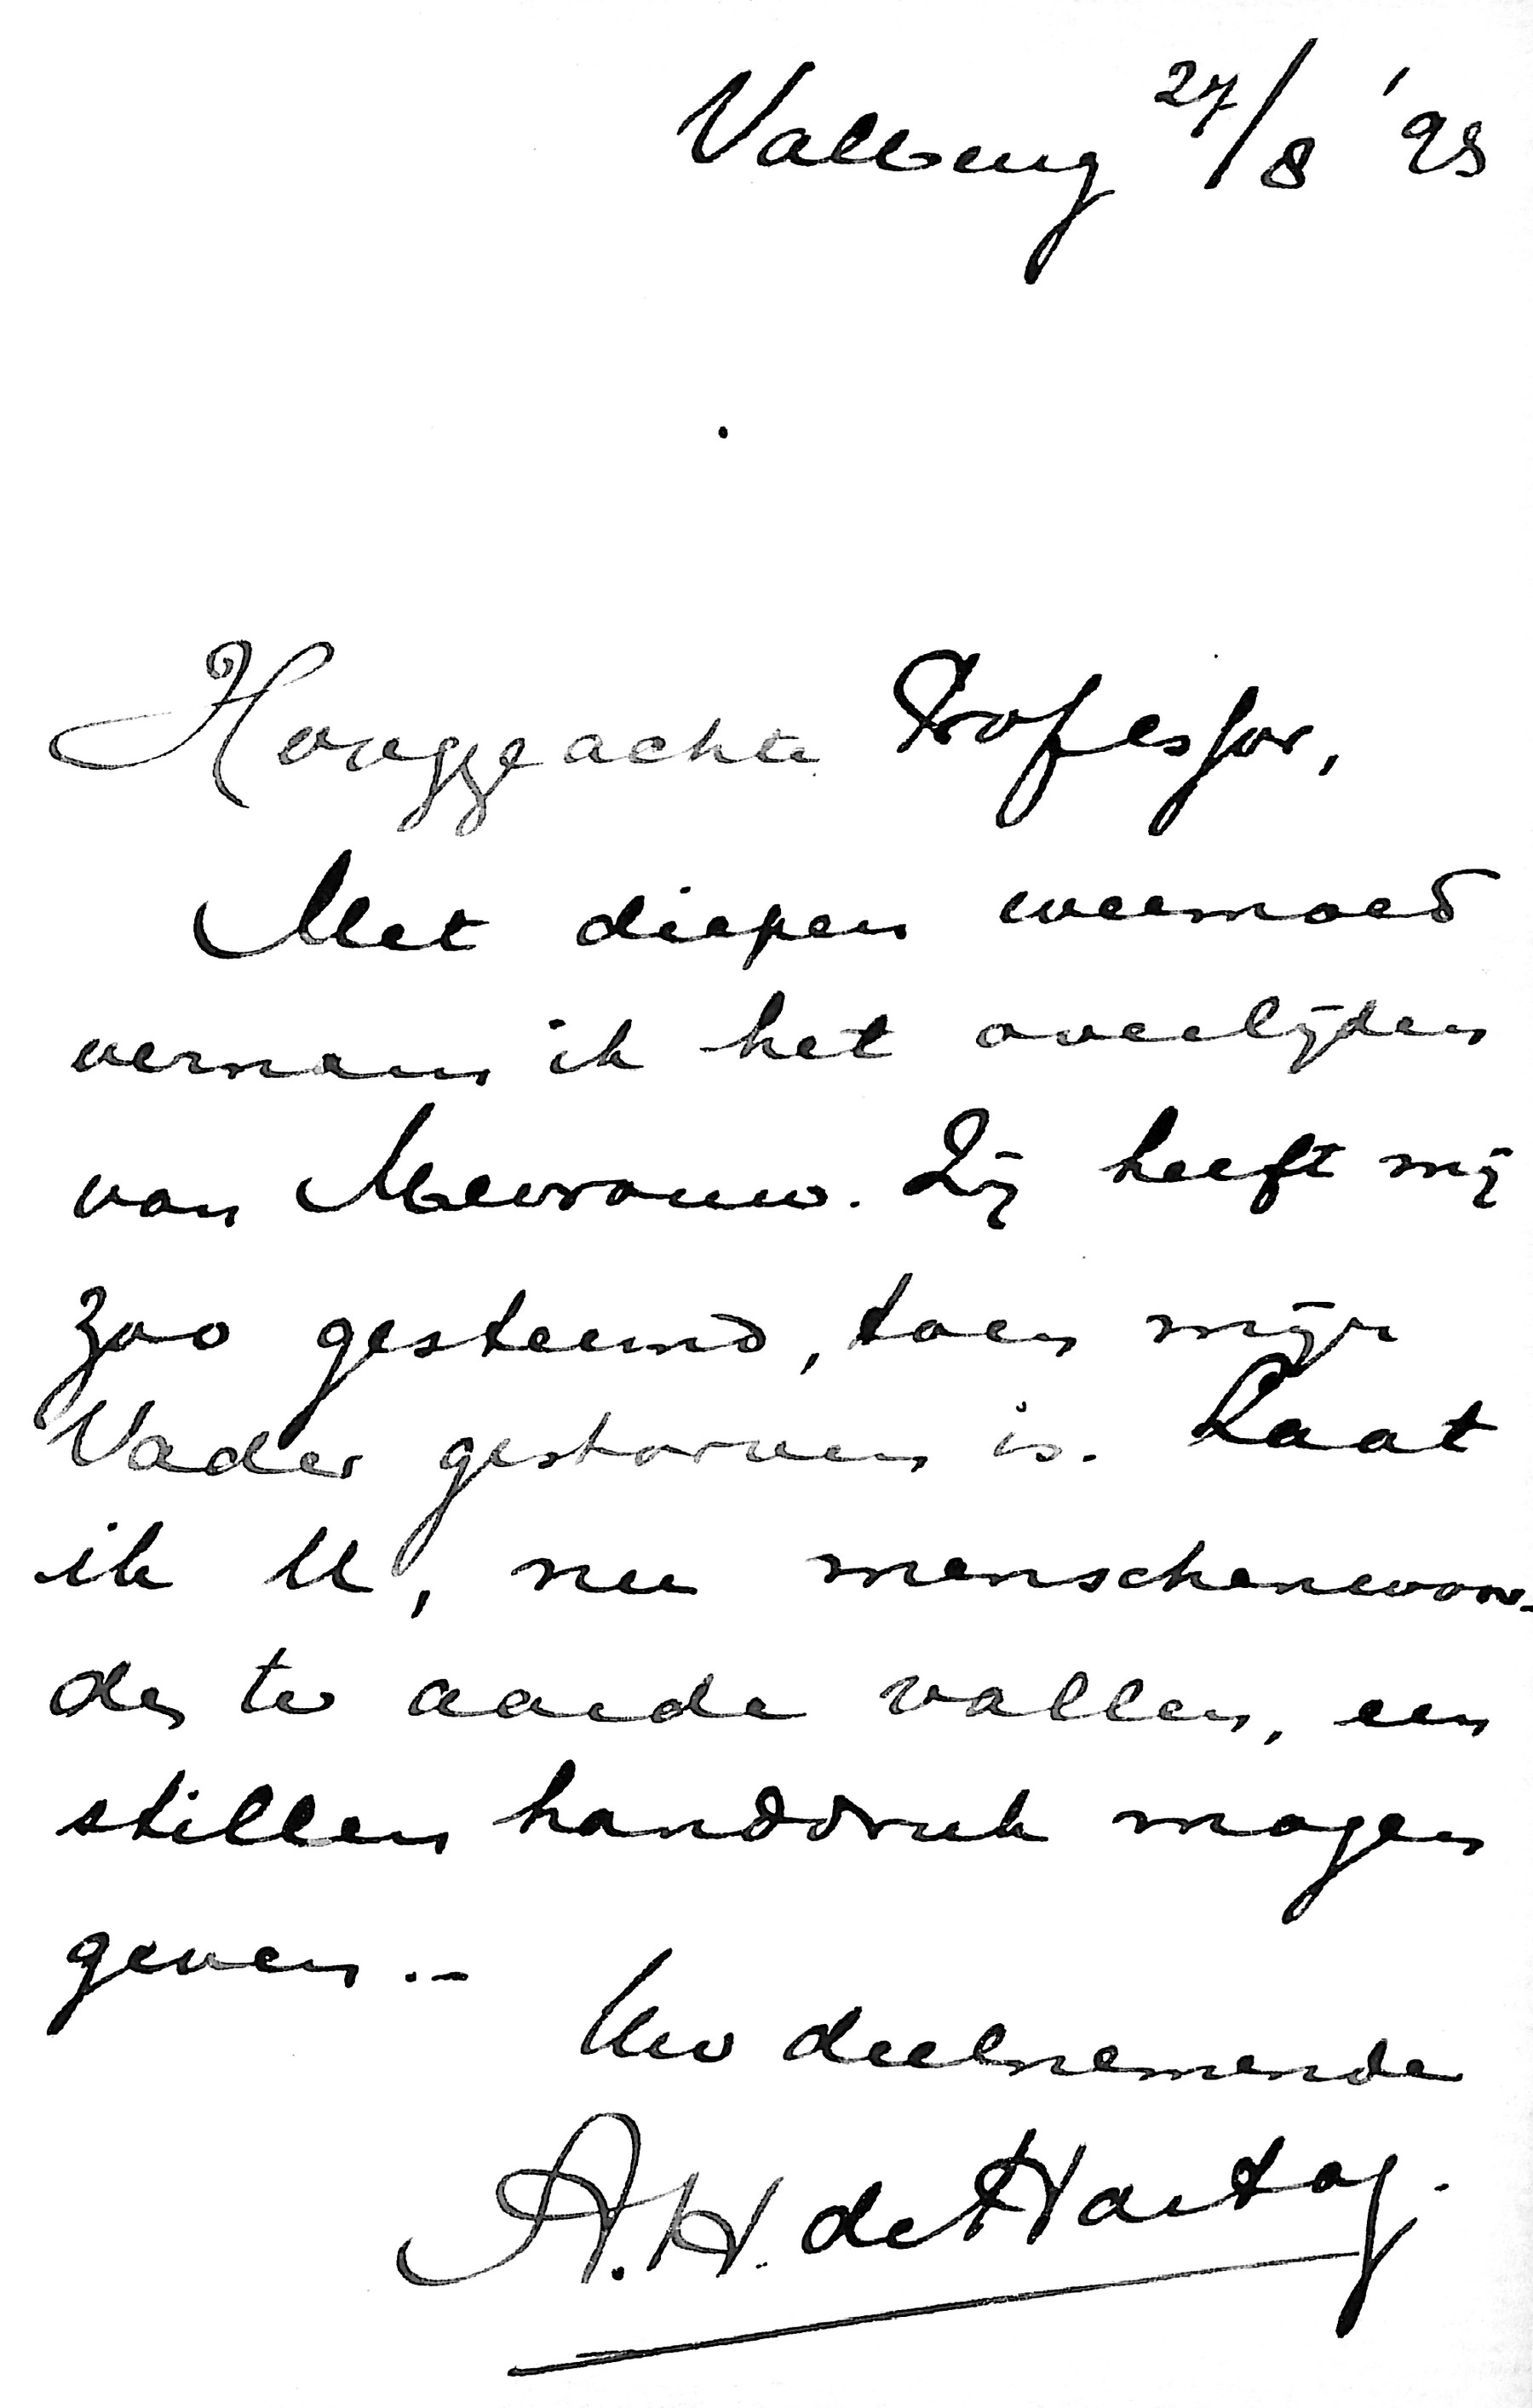 Valburg 27/8 '98
Hooggeachte Professor,
Met diepen weemoed
vernam ik het overlijden
van Mevrouw. Zij heeft mij
zoo gesteund, toen mijn
Vader gestorven is. Laat
ik U, nu menschenwoor-
den te aarde vallen, een
stillen handdruk mogen
geven.-
Uw deelnemende
A. H. de Hartog.